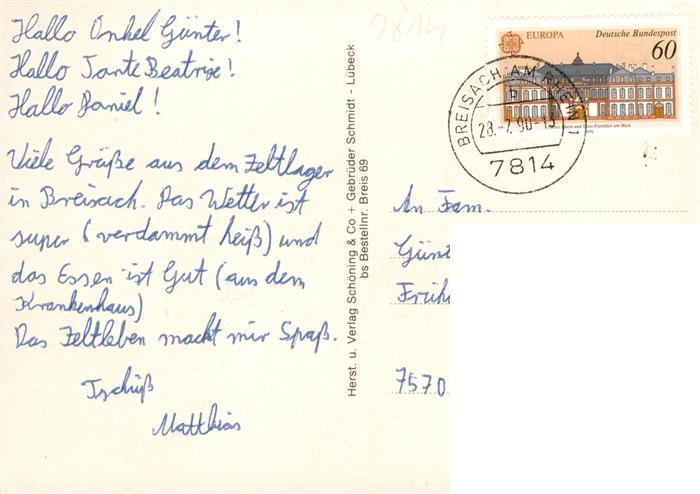 Hallo Onkel Günter!
Hallo Tante Beatrixe!
Hallo Daniel!
Viele Grüße aus dem Zeltlager
in Breisach. Das Wetter ist
super (verdammt heiß) und
das Essen ist Gut (aus dem
Krankenhaus)
Das Zeltleben macht mir Spaß.
Tschüß
Matthias
Herst. u. Verlag Schöning & Co + Gebrüder Schmidt - Lübeck
bs Bestellnr. Breis 69
7814
EUROPA Deutsche Bundespost
60
BREISACH AM RHEIN 1
b
28.-7.90-13
7814
An Fam.
Günt
Früh
7570